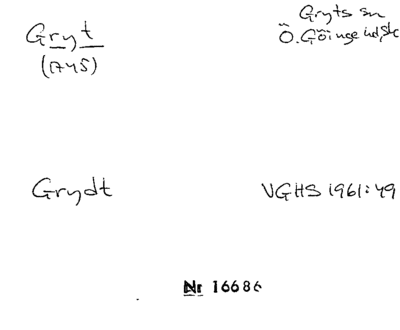 Gryt
(1745)
Gryts sn
Ö. Göinge hd, Sk
Grydt
VGHS 1961:49
Nr 16686